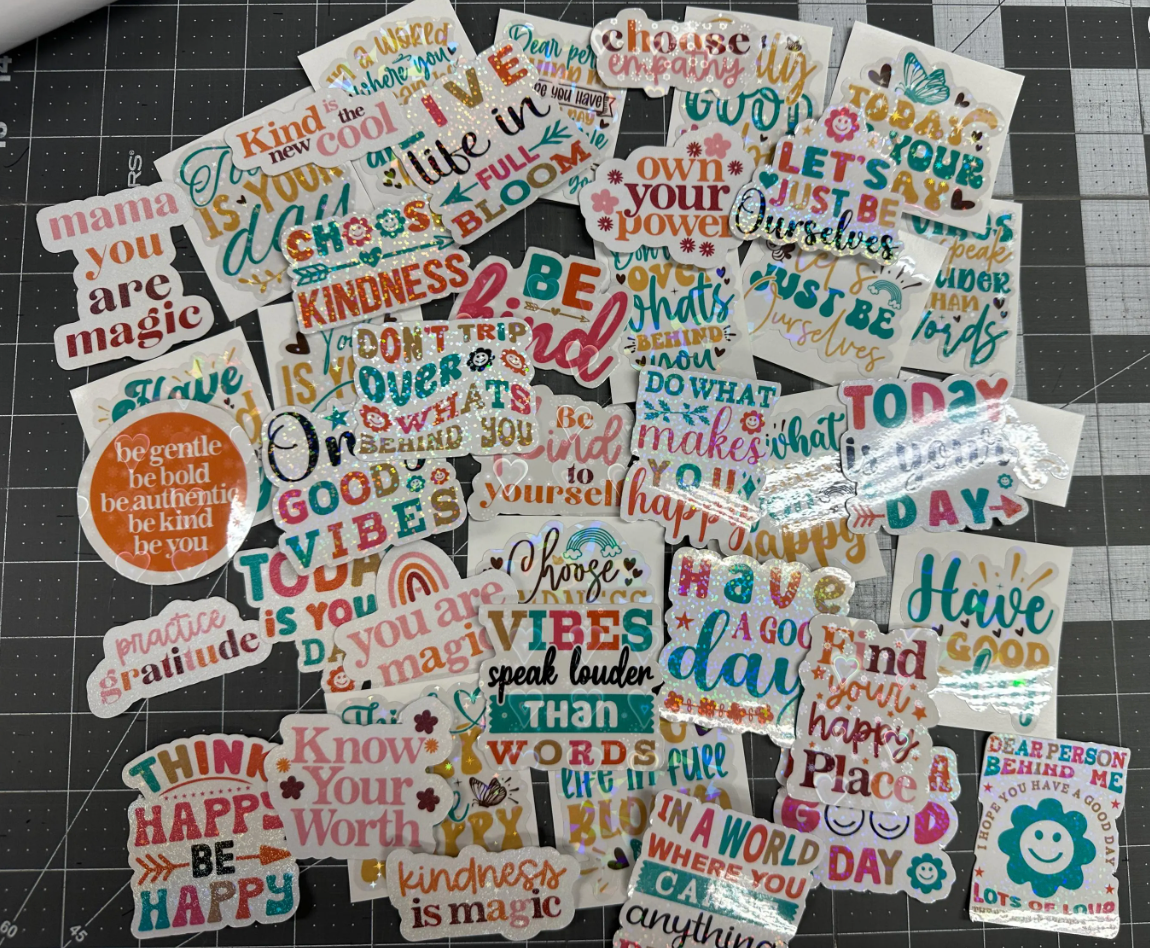 in a world
where you
LIVE
life in
FULL
BLOOM
Dear per
choose
empathy
GOOD
TODAY
YOUR
Kind is the
new cool
IS YOUR
day
own
your
power
LET'S
JUST BE
Ourselves
mama
you
are
magic
CHOOSE
KINDNESS
BE
kind
Don't
OVER
whats
BEHIND
you
let's
JUST BE
Ourselves
speak
LOUDER
THAN
Words
Have
be gentle
be bold
be authentic
be kind
be you
DON'T TRIP
OVER
WHATS
BEHIND YOU
GOOD
VIBES
Be
kind
to
yourself
DO WHAT
makes
YOU
happy
what
happy
TODAY
is your
DAY
TODA
IS YOU
DA
practice
gratitude
you are
magic
Choose
KINDNESS
VIBES
speak louder
THAN
WORDS
Have
A GOO
day
Find
your
happy
Place
Have
GOOD
THINK
HAPPY
BE
HAPPY
Know
Your
Worth
kindness
is magic
life in full
BLO
IN A WORLD
WHERE YOU
CA
anything
A
GOOD
DAY
DEAR PERSON
BEHIND ME
I HOPE YOU HAVE A GOOD DAY
LOTS OF LOVE
14
60
45